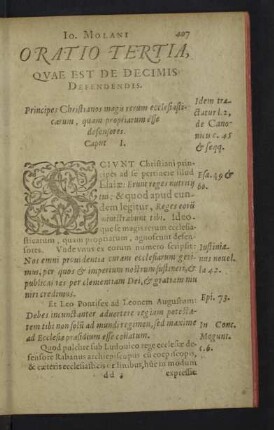 IO. MOLANI 407
ORATIO TERTIA,
QVAE EST DE DECIMIS
DEFENDENDIS.
Principes Christianos magis rerum ecclesiasti-
carum, quam propriarum esse
defensores.
Caput I.
Idem tra-
ctatur l. 2,
de Cano-
nicis c. 45
& seqq.
SCIVNT Christiani prin-
cipes ad se pertinere illud
Esaiæ: Erunt reges nutritij
tui; & quod apud eun-
dem legitur, Reges eorū
ministrabunt tibi. Ideo-
que se magis rerum ecclesia-
sticarum, quam propriarum, agnoscunt defen-
sores. Vnde vnus ex eorum numero scripsit:
Nos omni prouidentia curam ecclesiarum geri-
mus, per quas & imperium nostrum sustineri, &
publicas res per clementiam Dei, & gratiam mu-
niri credimus.
Esa. 49 &
60.
Iustinia-
nus nouel.
la 42.
Et Leo Pontifex ad Leonem Augustum:
Debes incunctanter aduertere regiam potesta-
tem tibi non solū ad mundi regimen, sed maxime
ad Ecclesiæ præsidium esse collatam.
Epi. 73.
Quod pulchre sub Ludouico rege ecclesiæ de-
fensore Rabanus archiepiscopus cū coepiscopis,
& cæteris ecclesiasticis
In Conc.
Mogunt.
c. 6.
dd 4 expressit: